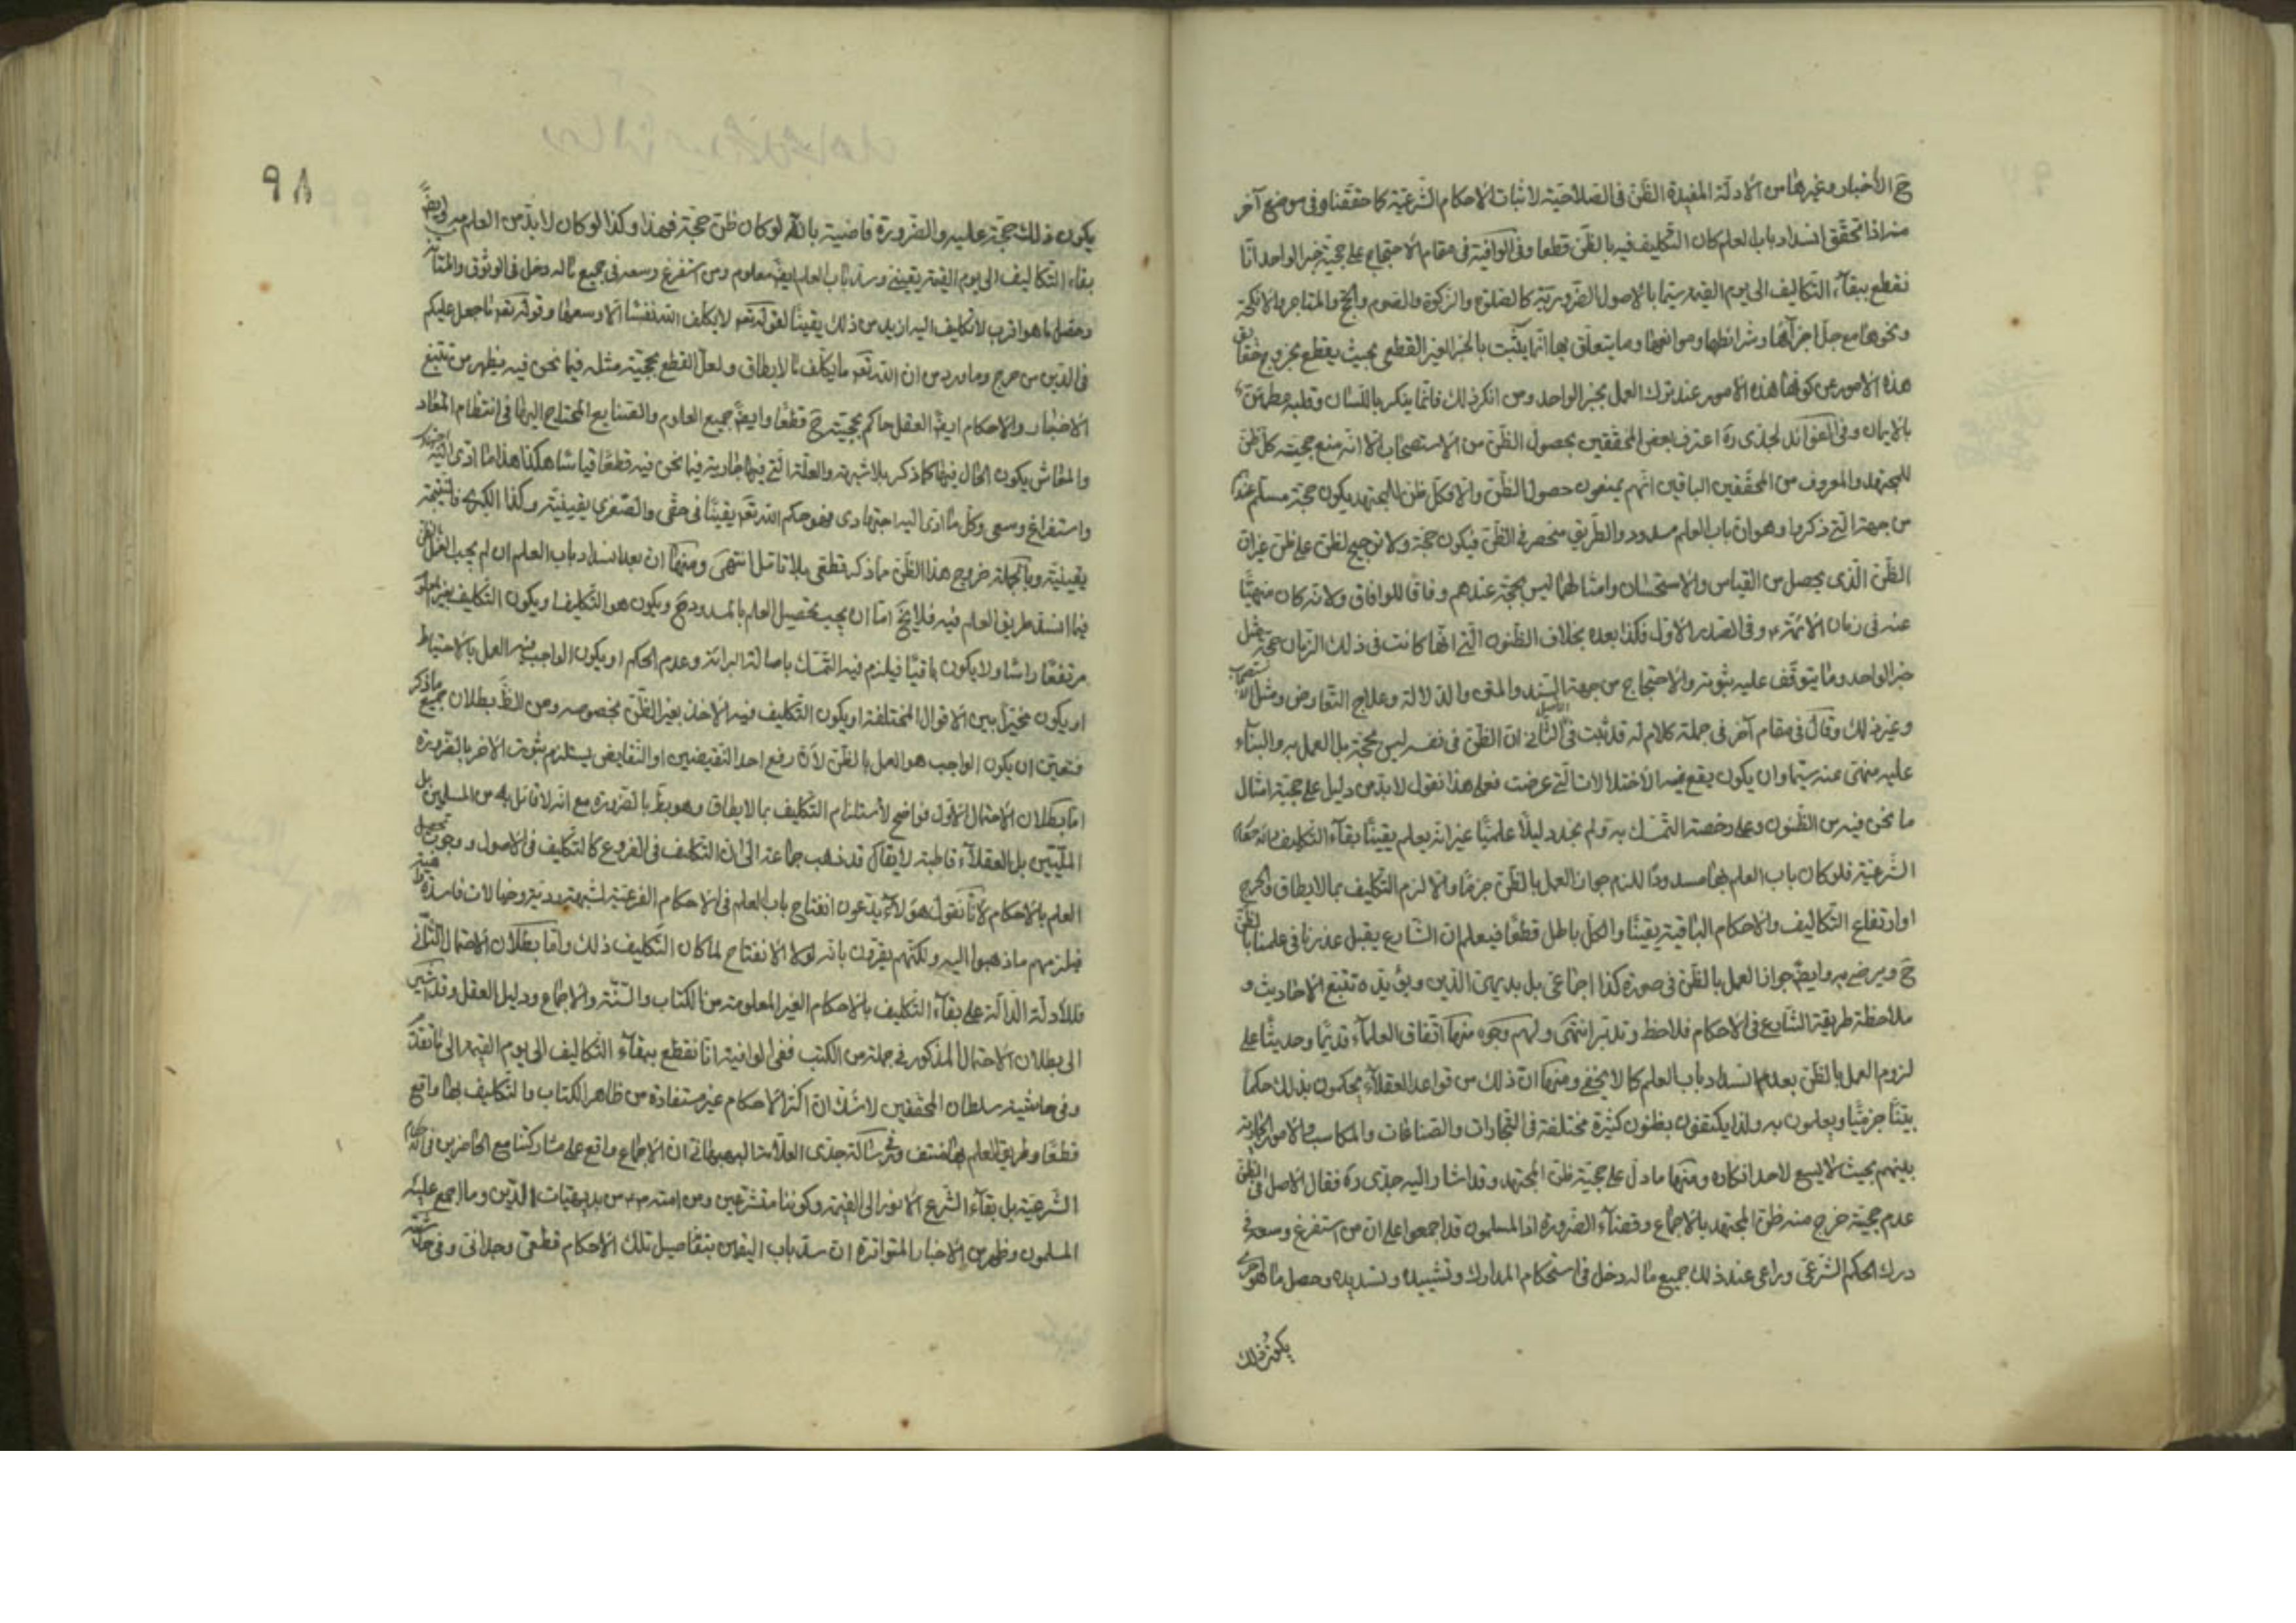 حَ الأخبار وغيرها من الأدلة المفيدة الظن فى الصلاحية لاثبات الأحكام الشرعية كما حققنا وفى موضع آخر
منه اذا تحقق انسداد باب العلم كان التكليف فيه بالظن قطعا وفى الوافية فى مقام الاحتجاج على حجية خبر الواحد انا
نقطع ببقاء التكاليف الى يوم القيمة سيما بالاصول الضرورية كالصلوة والزكوة والصوم والحج والمتاجر والانكحة
ونحوها مع جل اجزائها وشرائطها وموانعها وما يتعلق بها انما يثبت بالخبر الغير القطعى بحيث يقطع بخروج حقايق
هذه الامور عن كونها هذه الامور عند ترك العمل بخبر الواحد ومن انكر ذلك فانما ينكر باللسان وقلبه مطمئن
بالايمان وفى الفوائد لجدى ره اعترف بعض المحققين بحصول الظن من الاستصحاب الا انه منع حجية كل ظن
للمجتهد والمعروف من المحققين الباقين انهم يمنعون حصول الظن والا فكل ظن للمجتهد يكون حجة مسلم عندهم
من جهة التى ذكروا وهو ان باب العلم مسدود والطريق منحصر فى الظن فيكون حجة ولا ترجيح لظن على ظن غير ان
الظن الذى يحصل من القياس والاستحسان وامثالهما ليس بحجة عندهم وفاقا للوافاق ولانه كان منهيا
عنه فى زمان الائمة ع وفى الصدر الاول فكذا بعده بخلاف الظنون التى انها كانت فى ذلك الزمان حجة مثل
خبر الواحد وما يتوقف عليه ثبوته والاحتجاج من جهة السند والمتن والدلالة وعلاج التعارض ومثل الاستصحاب
وغير ذلك وقال فى مقام آخر فى جملة كلام له قد ثبت فى الاصل الثانى ان الظن فى نفسه ليس بحجة بل العمل به والبناء
عليه منهى عنه سيما وان يكون يقع فيه الاختلالات التى عرضت فعلى هذا نقول لا بد من دليل على حجية امثال
ما نحن فيه من الظنون وعلى رخصة التمسك به ولم نجد دليلا علميا غير انه يعلم يقينا بقاء التكليف
الشرعية فلو كان باب العلم بها مسدودا للزم جواز العمل بالظن جزما والا لزم التكليف بما لا يطاق والحرج
او ارتفاع التكاليف والاحكام الباقية يقينا والكل باطل قطعا فيعلم ان الشارع يقبل عذرنا فى علمنا بالظن
حَ ويرضى به وايضا جواز العمل بالظن فى صورة كذا اجماعى بل بديهى الدين ويؤيده تتبع الاحاديث و
ملاحظة طريقة الشارع فى الاحكام فلاحظ وتدبر انتهى ولهم وجوه منها اتفاق العلماء قديما وحديثا على
لزوم العمل بالظن بعد انسداد باب العلم كما لا يخفى ومنها ان ذلك من قواعد العقلاء يحكمون بذلك حكما
بينا جزميا ويعلمون به ولذا يكتفون بظنون كثيرة مختلفة فى التجارات والصناعات والمكاسب والامور الجارية
بينهم بحيث لا يسع لاحد انكاره ومنها ما دل على حجية ظن المجتهد وقد اشار اليه جدى ره فقال الاصل فى الظن
عدم حجية خرج منه ظن المجتهد بالاجماع وقضاء الضرورة اذ المسلمون قد اجمعوا على ان من استفرغ وسعه فى
درك الحكم الشرعى وراعى عند ذلك جميع ما له دخل فى استحكام المدارك وتشييده وتسديده وحصل ما هو احرى
يكون ذلك
٩٨
يكون ذلك حجة عليه والضرورة قاضية بانه لو كان ظن حجة فهذا وكذا لو كان لا بد من العلم به وايضا
بقاء التكاليف الى يوم القيمة يقينى وسد باب العلم ايضا معلوم ومن استفرغ وسعه فى جميع ما له دخل فى الوثوق والمتانة
وحصل ما هو اقرب لا تكليف اليه ازيد من ذلك يقينا لقوله تعه لا يكلف الله نفسا الا وسعها وقوله تعه ما جعل عليكم
فى الدين من حرج وما ورد من ان الله تعه ما يكلف ما لا يطاق ولعل القطع بحجية مثله فيما نحن فيه يظهر من تتبع
الاخبار والاحكام ايضا العقل حاكم بحجيته حَ قطعا وايضا جميع العلوم والصنايع المحتاج اليها فى انتظام المعاد
والمعاش يكون الحال فيها كما ذكر بلا شبهة والعلة التى فيها جارية فيما نحن فيه قطعا قياسا هكذا هذا ما ادى اليه اجتهادى
واستفراغ وسعى وكل ما ادى اليه اجتهادى فهو حكم الله تعه يقينا فى حقى والصغرى يقينية وكذا الكبرى فالنتيجة
يقينية وبالجملة خروج هذا الظن مما ذكر قطعى بلا تامل انتهى ومنها ان بعد انسداد باب العلم ان لم يجب العمل بالظن
فيما انسد طريق العلم فيه فلا يخ اما ان يجب تحصيل العلم بالمسدود حَ ويكون هو التكليف او يكون التكليف بغير المعلوم
مرتفعا راسا ولا يكون باقيا فيلزم فيه التمسك باصالة البرائة وعدم الحكم او يكون الواجب فيه العمل بالاحتياط
او يكون مخيرا بين الاقوال المختلفة او يكون التكليف فيه الاخذ بغير الظن بخصوصه ومن الظ بطلان جميع ما ذكر
فتعين ان يكون الواجب هو العمل بالظن لان رفع احد النقيضين او النقايض يستلزم ثبوت الاخر بالضرورة
اما بطلان الاحتمال الاول فواضح لاستلزام التكليف بما لا يطاق وهو بط بالضرورة مع انه لا قائل به من المسلمين بل
المليين بل العقلاء قاطبة لا يقال قد ذهب جماعة الى ان التكليف فى الفروع كالتكليف فى الاصول ووجوب تحصيل
العلم بالاحكام لانا نقول هؤلاء يدعون انفتاح باب العلم فى الاحكام الفرعية لشبهة ردية وخيالات فاسدة
فيلزمهم ما ذهبوا اليه ولكنهم يقرون بانه لولا الانفتاح لما كان التكليف ذلك واما بطلان الاحتمال الثانى
فللادلة الدالة على بقاء التكليف بالاحكام الغير المعلومة من الكتاب والسنة والاجماع ودليل العقل وقد اشير
الى بطلان الاحتمال المذكور فى جملة من الكتب ففى الوافية انا نقطع ببقاء التكاليف الى يوم القيمة الى ما تقدم
وفى حاشية سلطان المحققين لا شك ان اكثر الاحكام غير مستفادة من ظاهر الكتاب والتكليف بها واقع
قطعا وطريق العلم بها منتف وفى رسالة جدى العلامة البهبهانى ان الاجماع واقع على مشاركتنا مع الحاضرين فى الاحكام
الشرعية بل بقاء الشرع الانور الى القيمة وكوننا متشرعين ومن امته ص من بديهيات الدين وما اجمع عليه
المسلمون وظهر من الاخبار المتواترة ان سد باب اليقين بتفاصيل تلك الاحكام قطعى وجدانى وفى حاشية